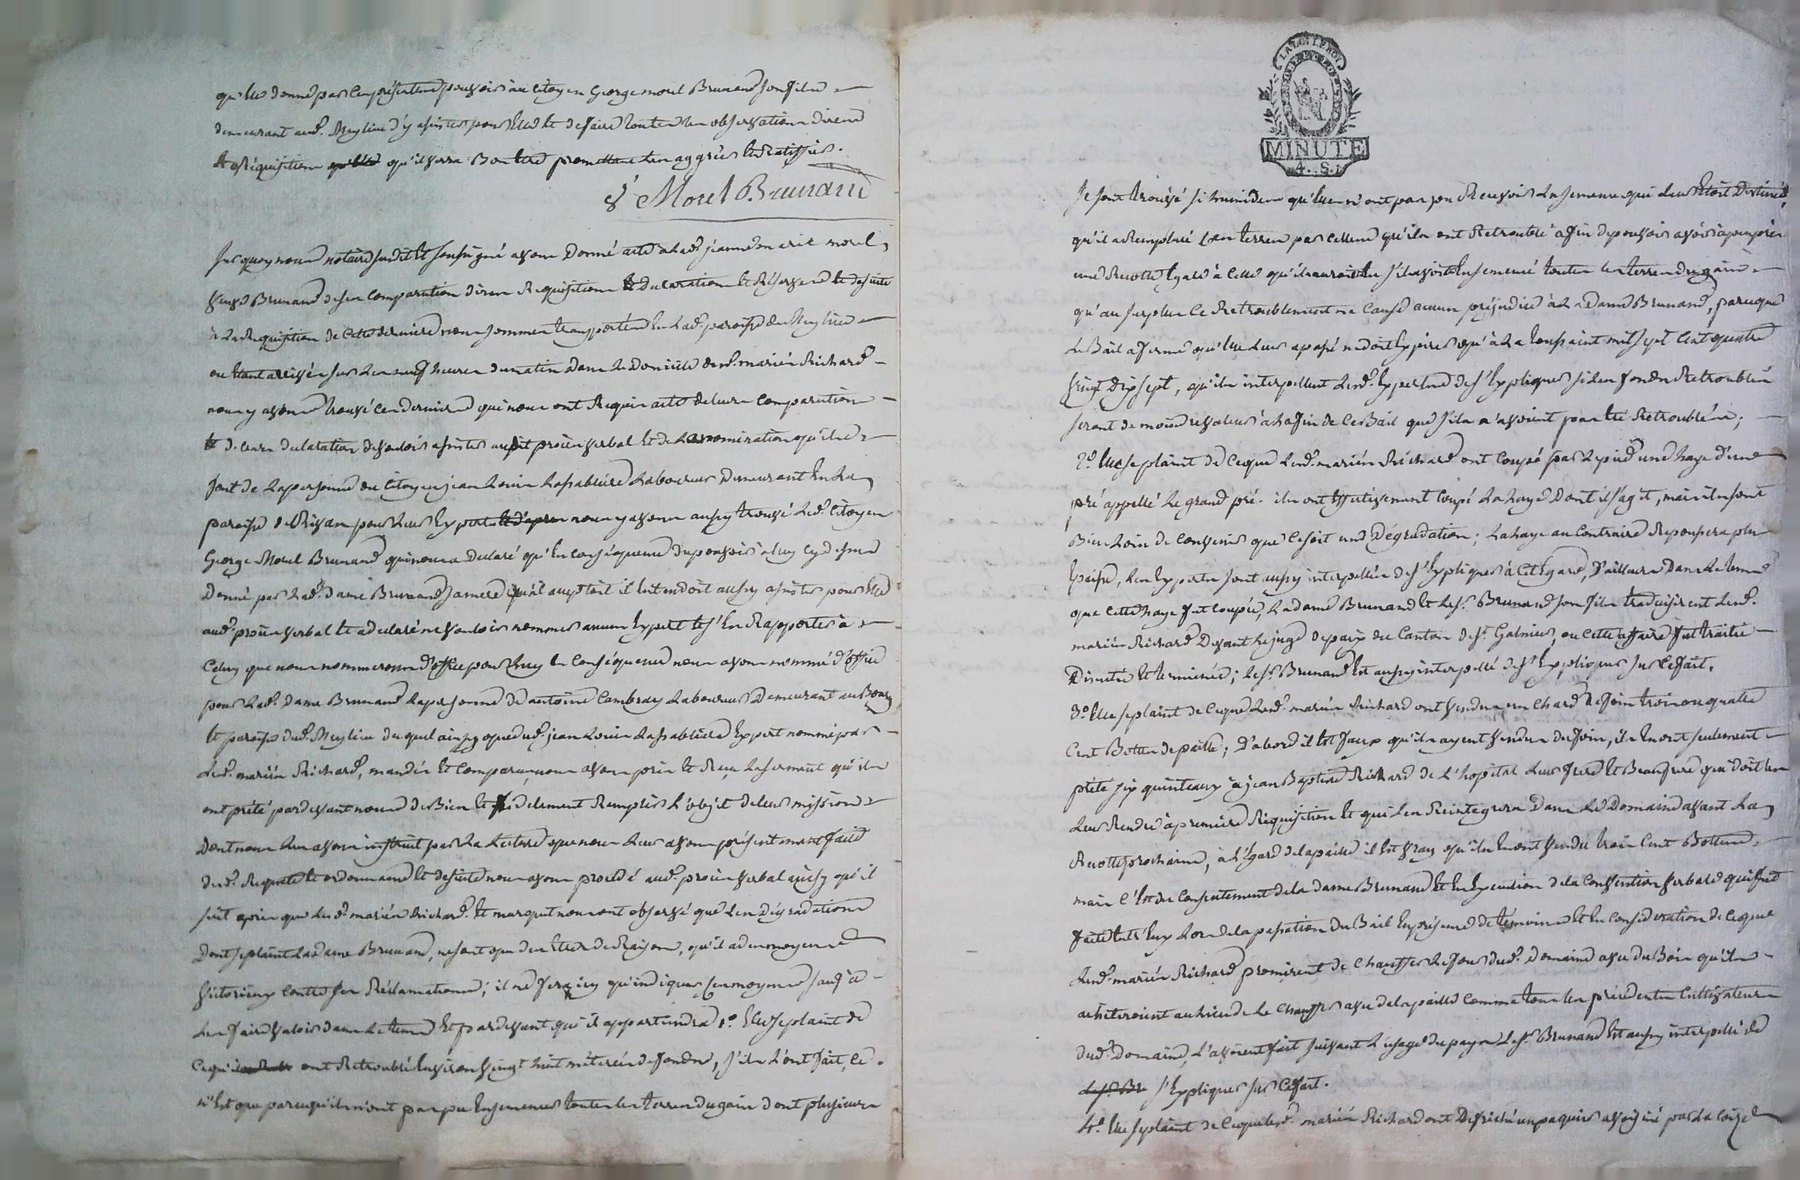 qu'elle donne par ces présentes pouvoir au Citoyen George morel Brunand son fils
demeurant aud. Meylieu d'y assister pour Elle et de faire toutes les observations dires
et Réquisitions qu'il verra Bon Etre promettant les aggréer et Ratiffier.
S Morel Brunand
Sur quoy nous notaire susdit et soussigné avons Donné acte a lad. jeanne morel,
veuve Brunand de ses Comparution dires Requisitions et declarations et Réserves et de suite
à la Requisition de cette derniere nous sommes transportés En lad. paroisse de Meylieu
ou Etant arrivés sur les neuf heures du matin Dans le Domicile desd. mariés Richard
nous y avons trouvé ces derniers qui nous ont Requis acte de leurs Comparution
et de leurs declaration de vouloir assister audit procès verbal et de la nomination qu'ils
font de la personne du Citoyen jean Louis Lassabliere Laboureur Demeurant En la
paroisse de Rivas pour leur Expert et d'apres nous y avons aussy trouvé led. Citoyen
George Morel Brunand qui nous a declaré qu'En conséquence du pouvoir a luy cy dessus
Donné par lad. dame Brunand sa mere il Entendoit aussy assister pour Elle
aud. procès verbal et a declaré ne vouloir nommer aucun Expert et s'En Rapporter à
Celuy que nous nommerons d'office pour luy En Conséquence nous avons nommé d'office
pour lad. dame Brunand la personne de antoine Combray Laboureur Demeurant au Bourg
et paroisse dud. Meylieu duquel ainsy que dud. jean Louis Lassabliere Expert nommé par
lesd. mariés Richard, mandés et Comparus, nous avons pris et Reçu le serment qu'ils
ont prété pardevant nous de Bien et fidelement Remplir l'objet de leur mission
Dont nous les avons instruit par la Lecture que nous leur avons présentement faite
desd. Requete et ordonnance et de suite nous avons procedé aud. procès verbal ainsy qu'il
suit après que lesd. mariés Richard et marquet nous ont observé que les Dégradations
dont se plaint la dame Brunand, ne sont que des Etres de Raison, qu'il a des moyens
victorieux contre ses Réclamations; il ne fera icy qu'indiquer ses moyens sauf à
les faire valoir dans le tems Et pardevant qui il appartiendra 1.° Elle se plaint de
ce qu'ils ont Retroublé Environ vingt huit méterées de fonds, s'ils l'ont fait, ce
n'Est que parce qu'ils n'ont pas pu Ensemencer toutes les terres du gain dont plusieurs
LA LOI LE ROI
MINUTE
4. S.
se sont trouvé si humides qu'Elles n'ont pas pu Recevoir la semence qui leur Etoit Destinée,
qu'il a Remplacé ces terres par celles qu'ils ont Retroublé afin de pouvoir avoir à peu près
une Recolte Egale à Celle qu'ils auroit Eu s'ils avoit Ensemencé toutes les terres du gain
qu'au surplus Ce Retroublement ne Cause aucun préjudice à la Dame Brunand, parceque
le Bail a ferme qu'Elle leur a passé ne doit Expirer qu'à la toussaint mil sept Cent quatre
vingt Dix sept, qu'ils interpellent lesd. Experts de s'Expliquer si les fonds Retroublés
seront de moindre valeur à la fin de Ce Bail que s'ils n'avoient pas été Retroublés;
2.° Elle se plaint de Ceque lesd. mariés Richard ont Coupé par le pied une haye d'un
pré appellé le grand pré. ils ont Effectivement Coupé la haye Dont il s'agit, mais ils sont
Bien Loin de Convenir que Ce soit une Dégradation; la haye au Contraire Repoussera plus
Epaisse, les Experts sont aussy interpellés de s'Expliquer à Cet Egard, D'ailleurs Dans le tems
que cette haye fut Coupée, la dame Brunand et le s.r Brunand son fils traduisirent lesd.
mariés Richard Devant le juge de paix du Canton de S.t Galmier, ou cette affaire fut traitée
Discutée et terminée; le s.r Brunand Est aussy interpellé de s'Expliquer sur Ce fait.
3.° Elle se plaint de Ceque lesd. mariés Richard ont vendu un Chard de foin trois ou quatre
Cent Bottes de paille; D'abord il Est faux qu'ils ayent vendu du foin, ils En ont seulement
prété six quintaux à jean Baptiste Richard de L'hopital leur frere Et Beaufrere qui doit les
leur Rendre à premiere Réquisition Et qui les Reintegrera Dans le Domaine avant la
Recolte prochaine, à l'Egard de la paille il Est vray qu'ils En ont vendu trois Cent Bottes
mais c'Est du Consentement de la dame Brunand Et En Execution de la Convention verbale qui fut
faite Entr'Eux Lors de la passation du Bail En présence de témoins Et En Consideration de Ceque
lesd. mariés Richard promirent de Chauffer le four dud. Domaine avec du Bois qu'ils
acheteroient au lieu de le Chauffer avec de la paille Comme tous les précédents Cultivateurs
dud. Domaine, L'avoient fait suivant L'usage du pays le s.r Brunand Est aussy interpellé de
Le s.r Br s'Expliquer sur Ce fait.
4.° Elle se plaint de Ceque lesd. mariés Richard ont Defriché un paquier avoisiné par La Coize